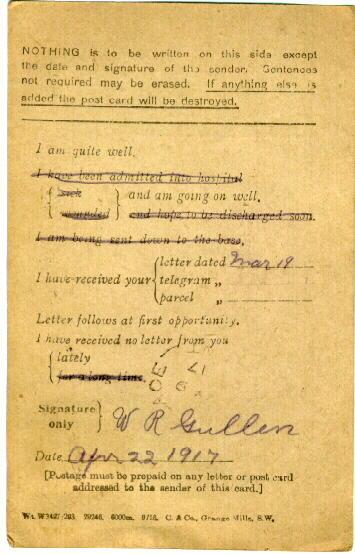 NOTHING is to be written on this side except
the date and signature of the sender. Sentences
not required may be erased. If anything else is
added the post card will be destroyed.
I am quite well.
I have been admitted into hospital
sick
and am going on well.
wounded
and hope to be discharged soon.
I am being sent down to the base.
letter dated Mar 19
I have received your telegram „
parcel „
Letter follows at first opportunity.
I have received no letter from you
lately
for a long time.
Signature
only
W R Gullen
Date Apr 22 1917
[Postage must be prepaid on any letter or post card
addressed to the sender of this card.]
Wt. W3497-293. 29246. 6000m. 9/16. C. & Co., Grange Mills, S.W.